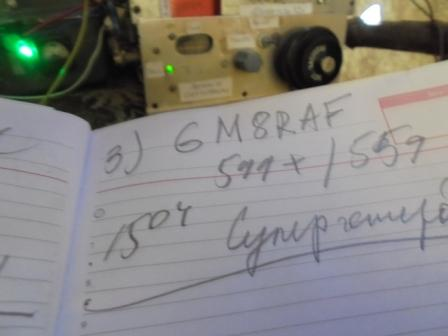 3) GM8RAF
599+ / 559
15⁰⁴ Супергетеро